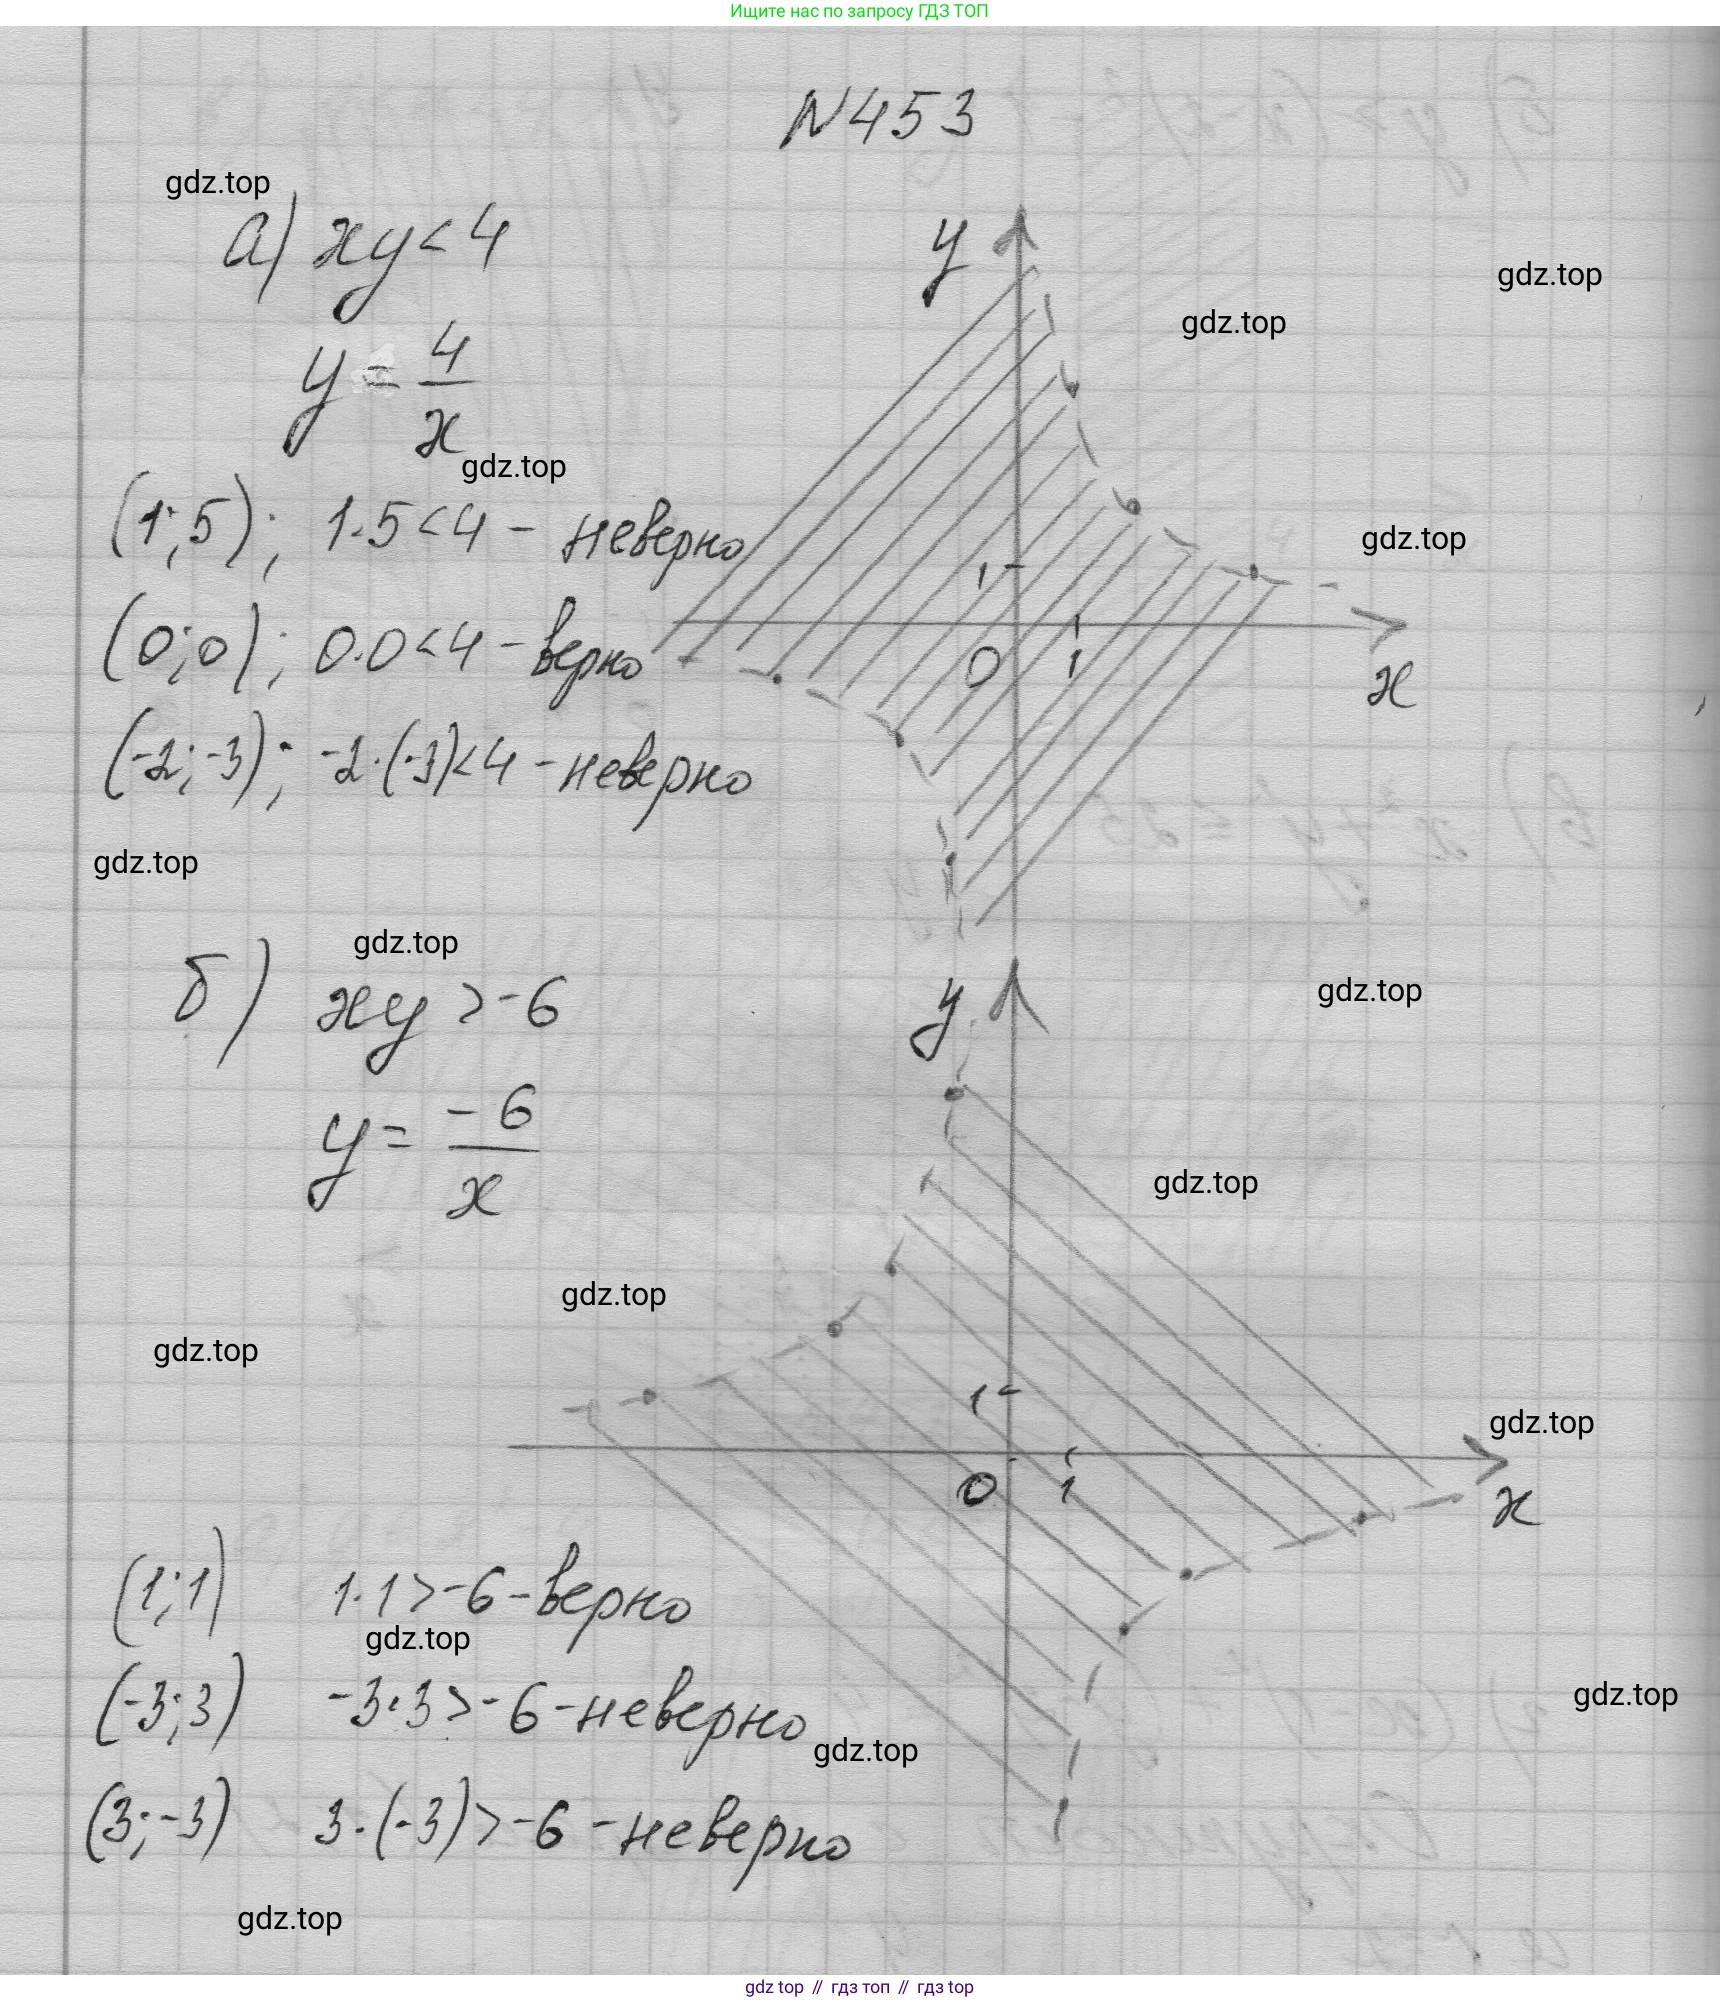 Ищите нас по запросу ГДЗ ТОП
N453
gdz.top
а) xy < 4
y
gdz.top
gdz.top
y = 4/x
gdz.top
(1; 5); 1·5 < 4 - неверно
gdz.top
1
(0; 0); 0·0 < 4 - верно
0
1
x
(-2; -3); -2·(-3) < 4 - неверно
gdz.top
gdz.top
б) xy > -6
y
gdz.top
y = -6/x
gdz.top
gdz.top
gdz.top
1
gdz.top
0
1
x
(1; 1) 1·1 > -6 - верно
gdz.top
(-3; 3) -3·3 > -6 - неверно
gdz.top
gdz.top
(3; -3) 3·(-3) > -6 - неверно
gdz.top
gdz top // гдз топ // гдз top